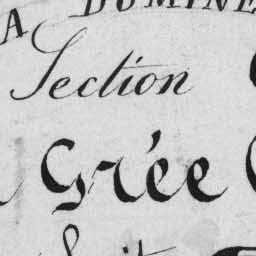 A DOMINE
Section
Grée